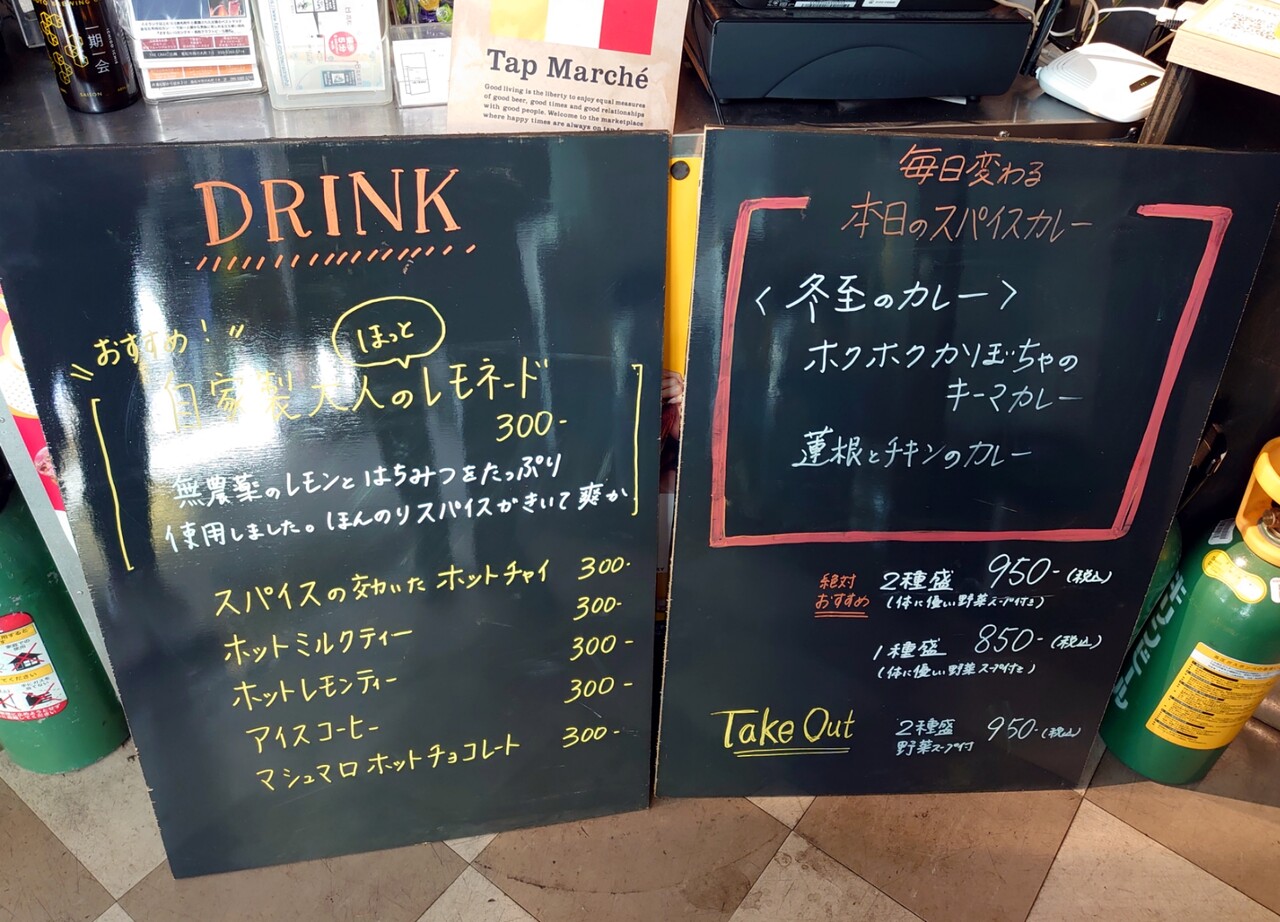 期一会
SAISON
Tap Marché
Good living is the liberty to enjoy equal measures
of good beer, good times and good relationships
with good people. Welcome to the marketplace
where happy times are always on tap
DRINK
おすすめ!
ほっと
自家製大人のレモネード
300-
無農薬のレモンとはちみつをたっぷり
使用しました。ほんのりスパイスがきいて爽か
スパイスの効いた ホットチャイ 300-
300-
ホットミルクティー 300-
ホットレモンティー 300-
アイスコーヒー
マシュマロ ホットチョコレート 300-
毎日変わる
本日のスパイスカレー
〈冬至のカレー〉
ホクホクかぼちゃの
キーマカレー
蓮根とチキンのカレー
絶対
おすすめ
2種盛 950-(税込)
(体に優しい野菜スープ付き)
1種盛 850-(税込)
(体に優しい野菜スープ付き)
Take Out
2種盛 950-(税込)
野菜スープ付